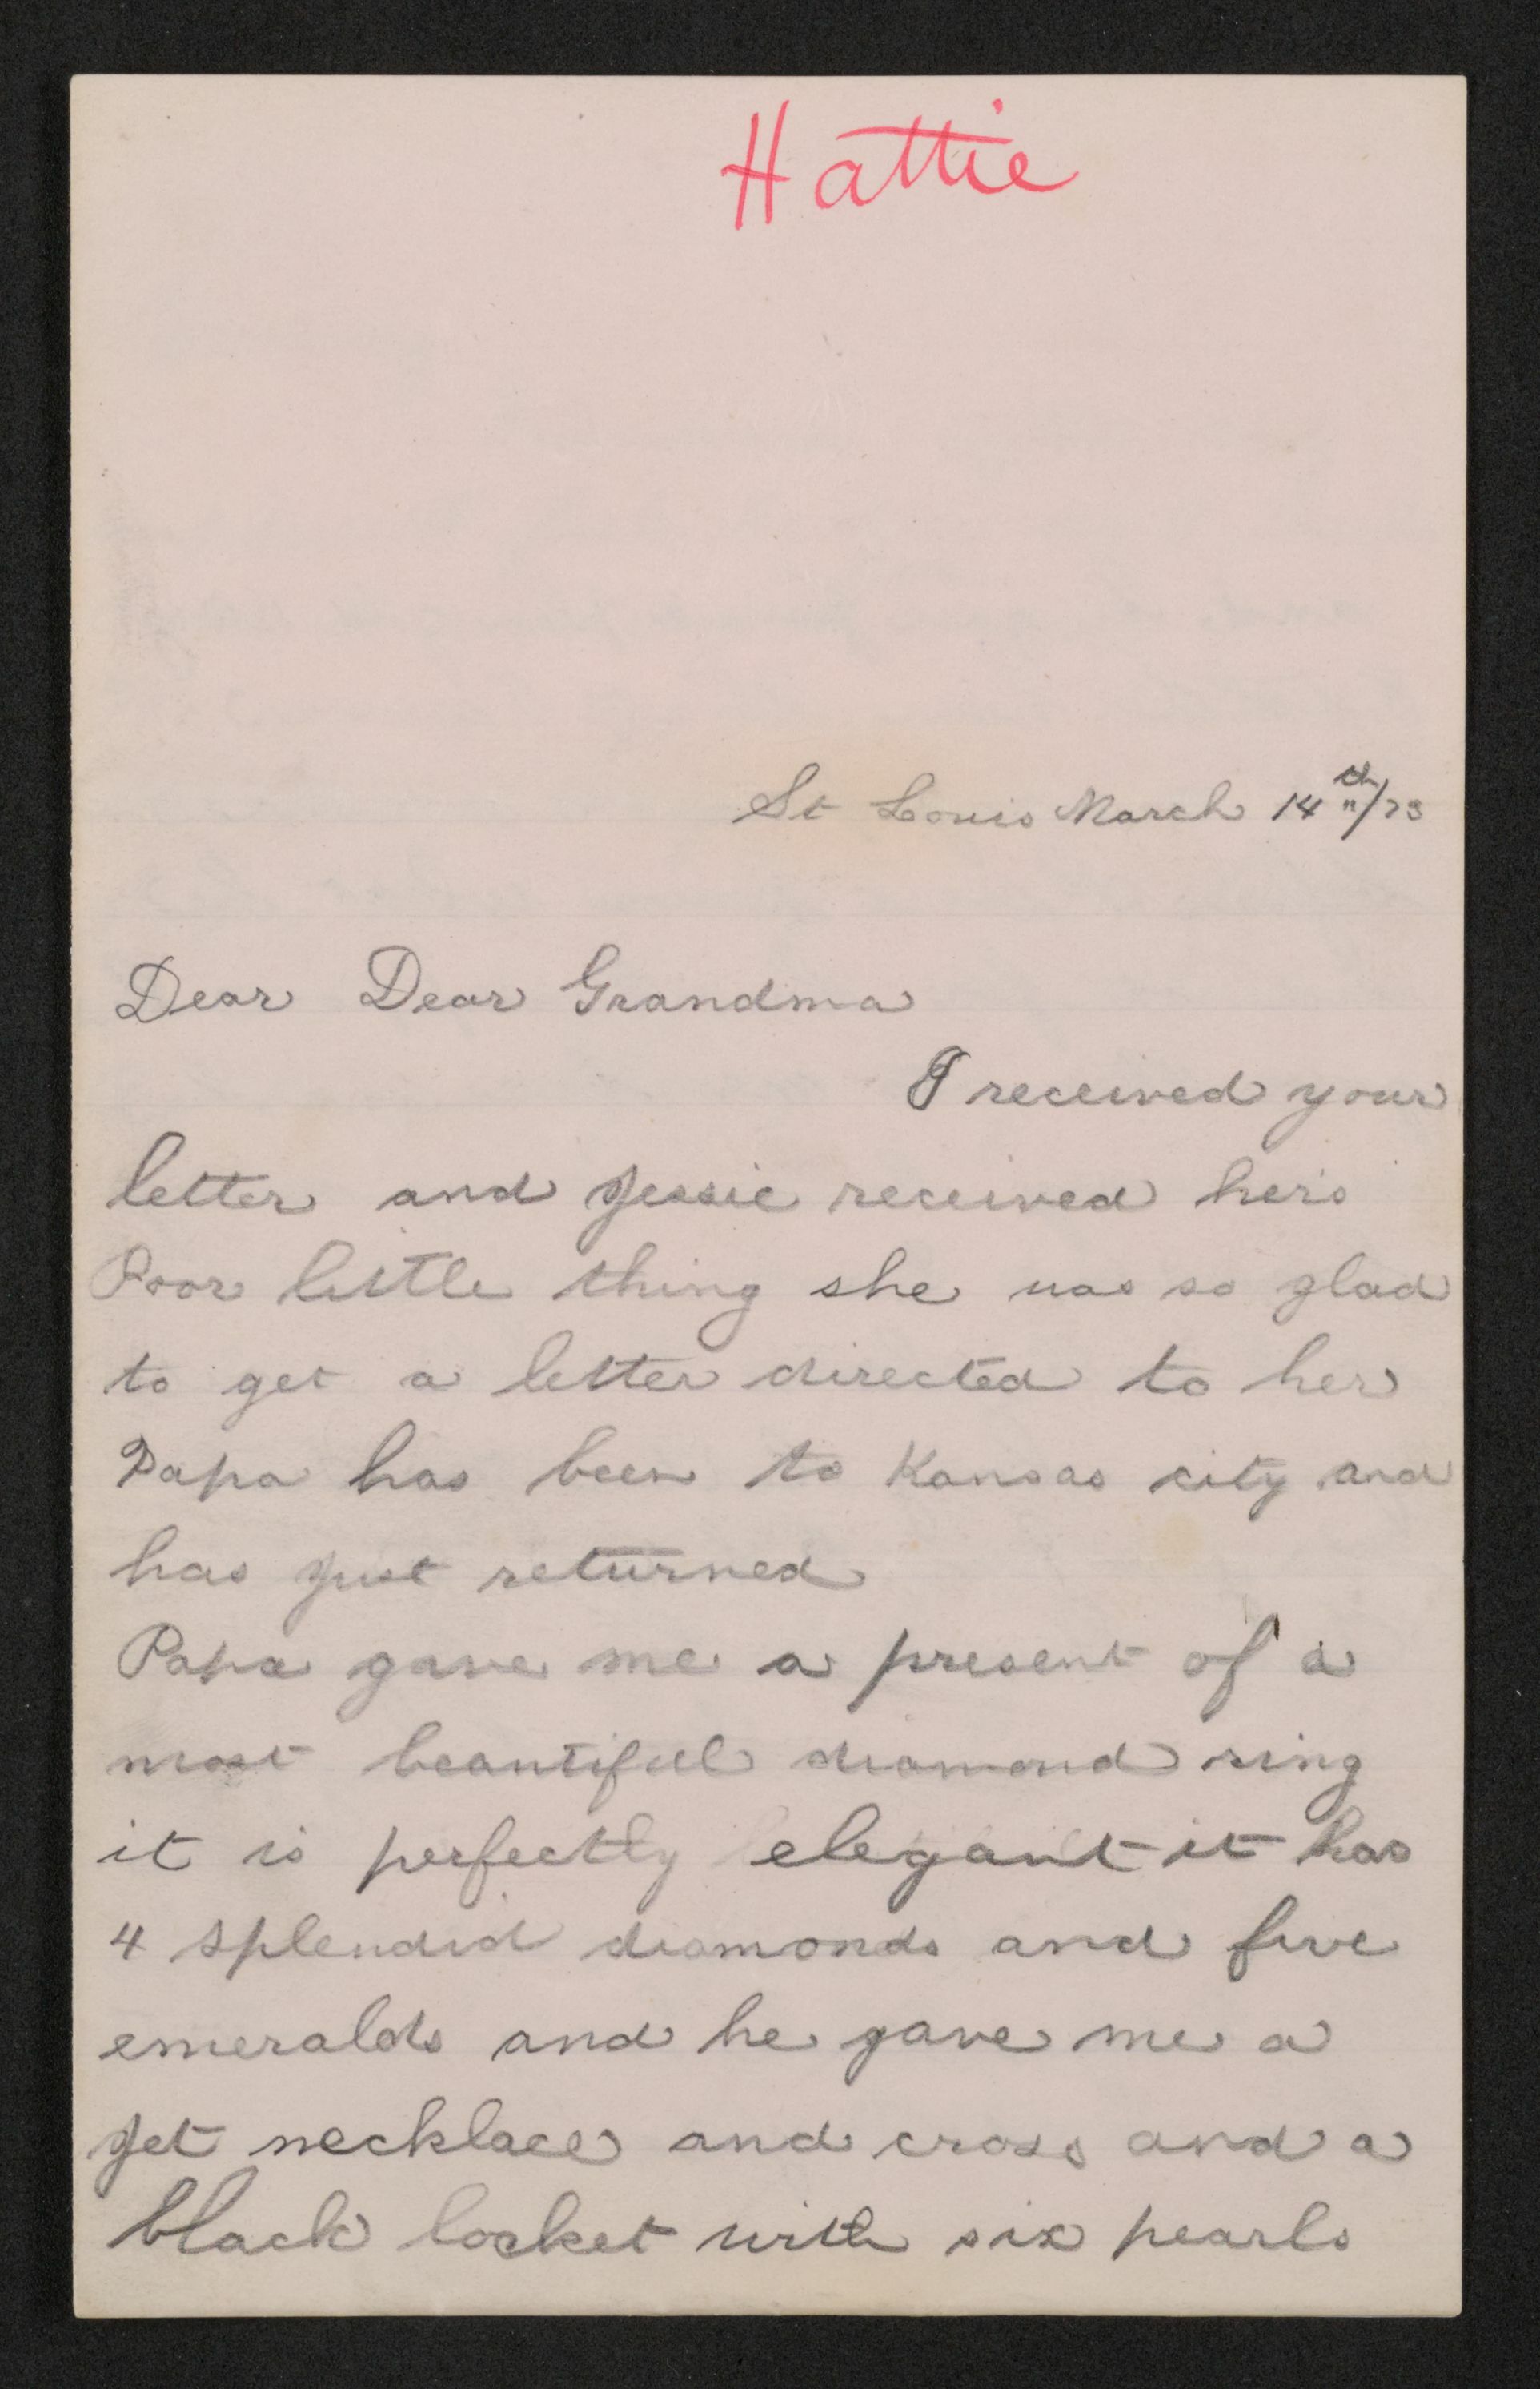 Hattie
St Louis March 14th/73
Dear Dear Grandma
I received your
letter and Jessie received hers
Poor little thing she was so glad
to get a letter directed to her
Papa has been to Kansas city and
has just returned
Papa gave me a present of a
most beautiful diamond ring
it is perfectly elegant it has
4 splendid diamonds and five
emeralds and he gave me a
jet necklace and cross and a
black locket with six pearls